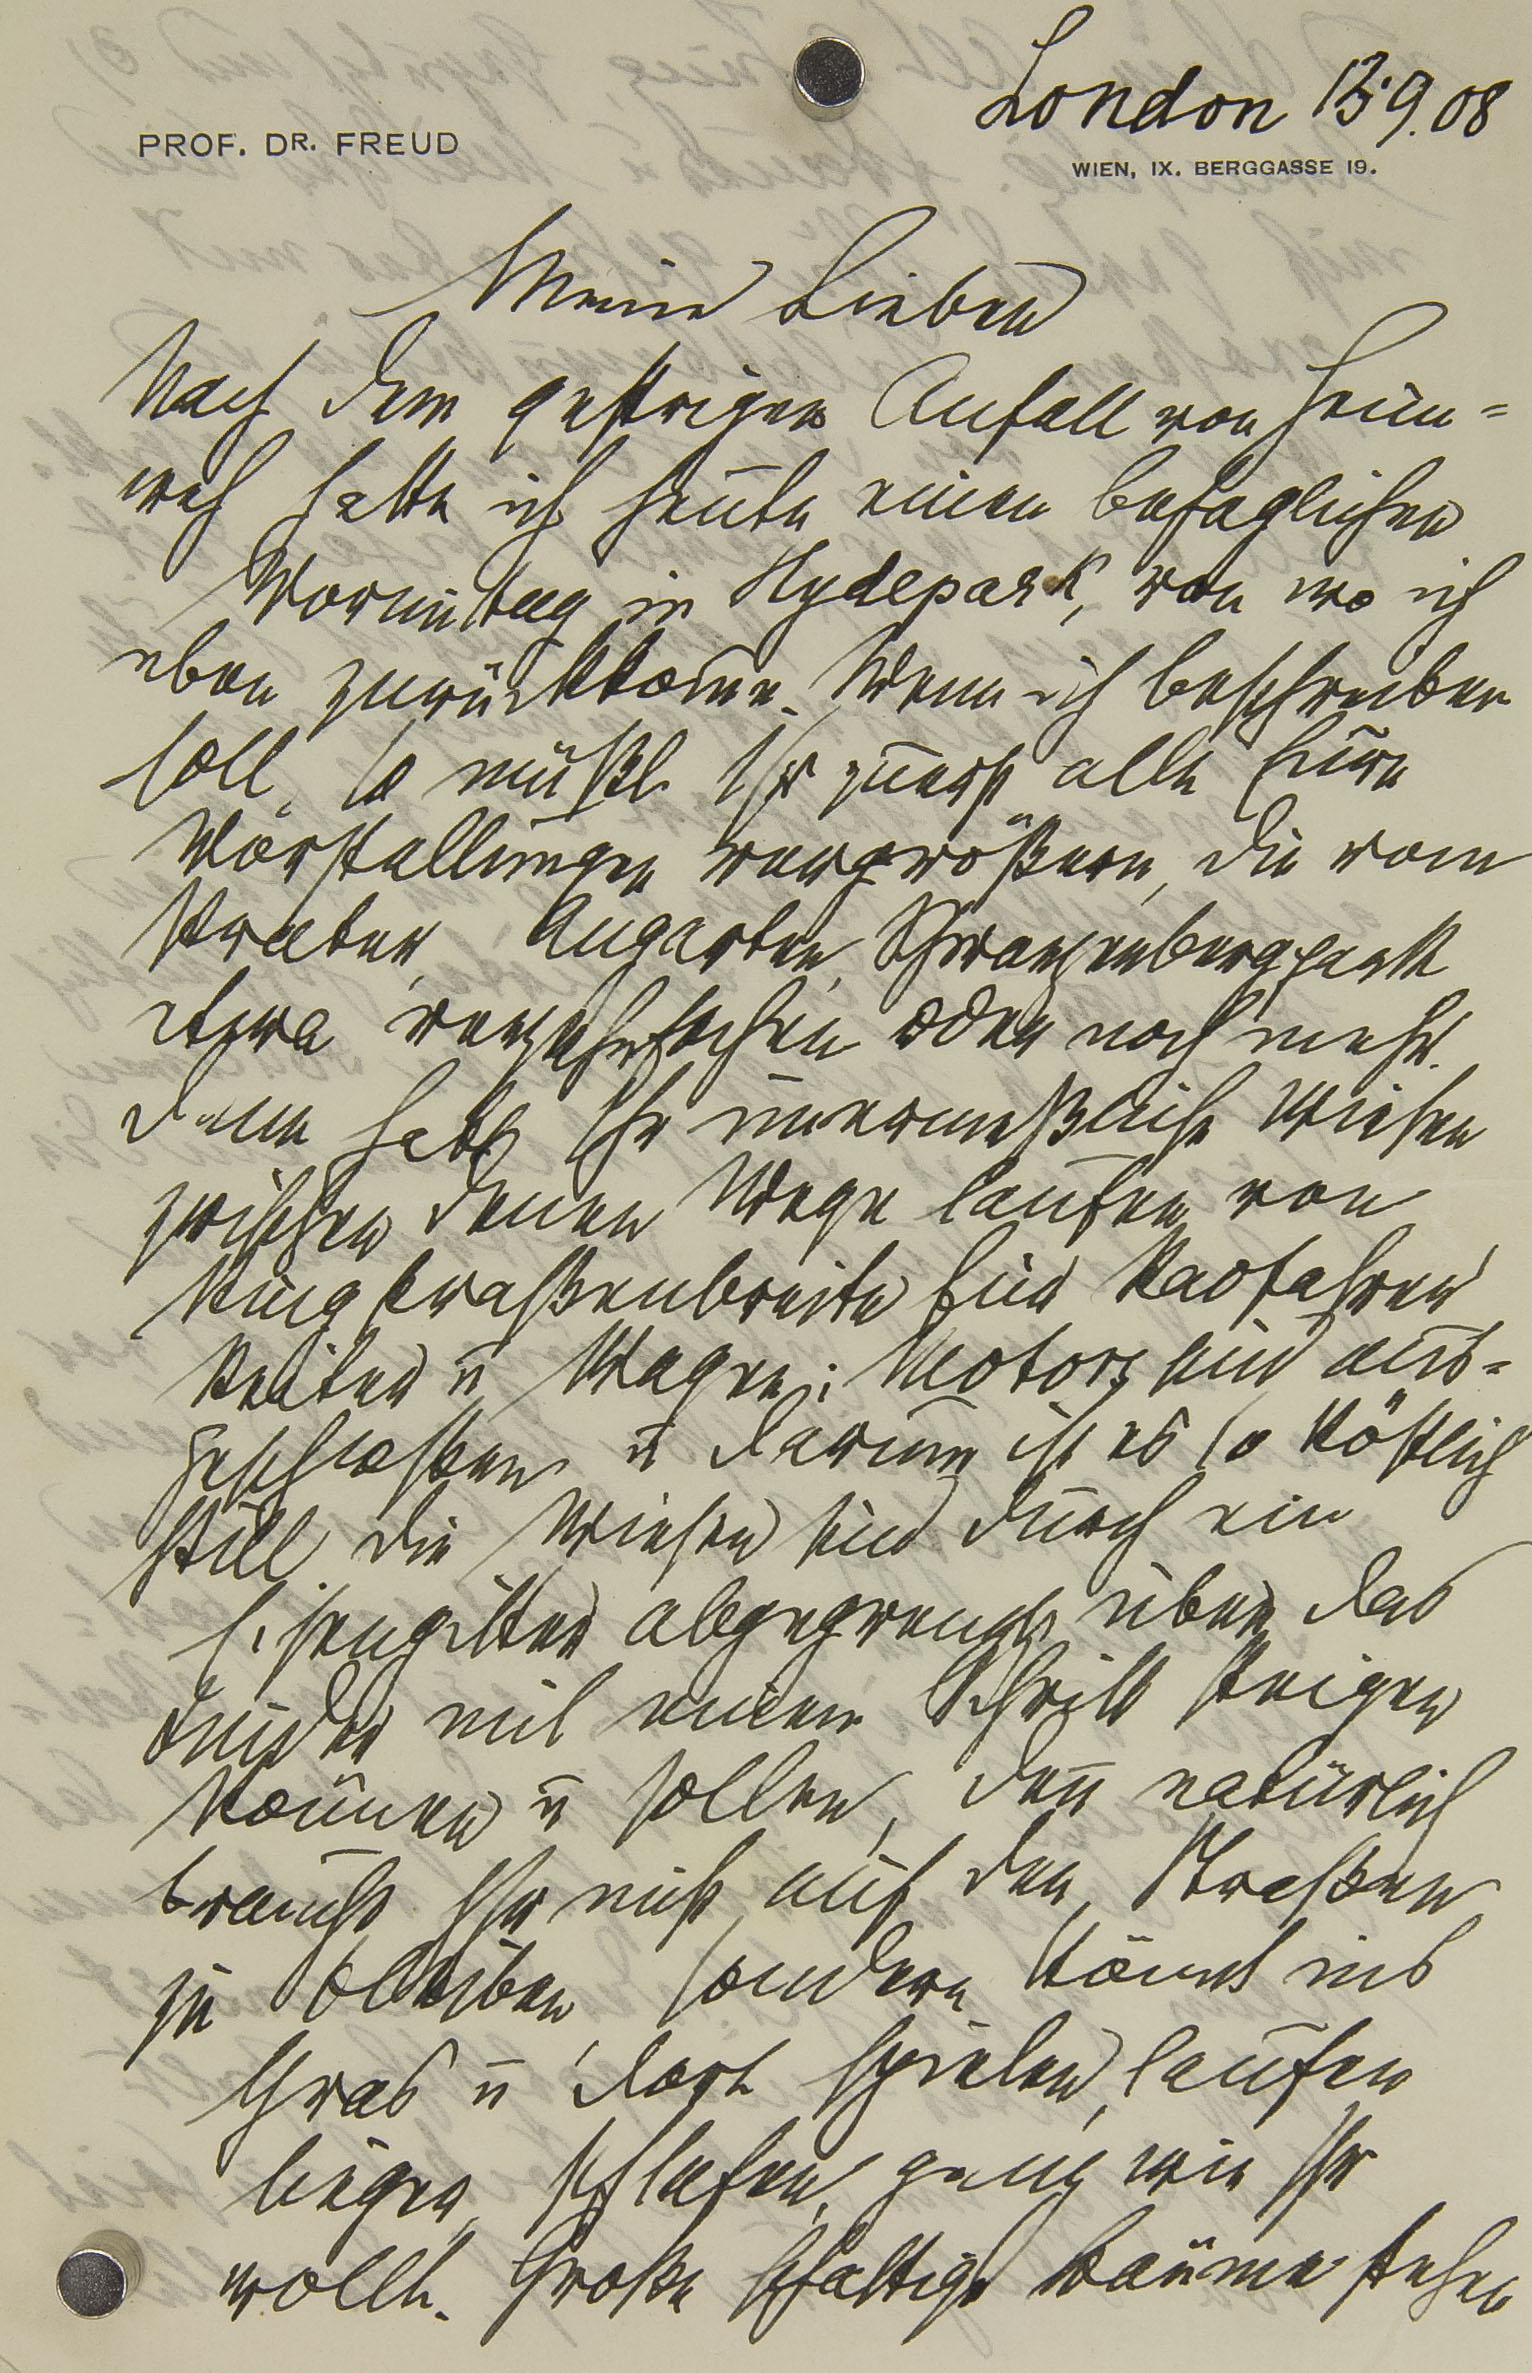 London 13.9.08
PROF. DR. FREUD
WIEN, IX. BERGGASSE 19.
Meine Lieben
Nach dem gestrigen Anfall von Heim=
weh hatte ich heute einen behaglichen
Vormittag in Hydepark, von wo ich
eben zurückkomme. Wenn ich beschreiben
soll, so müßt Ihr zuerst alle Eure
Vorstellungen vergrößern, die vom
Prater, Augarten, Schwarzenbergpark
etwa verzehnfachen oder noch mehr.
Dann habt Ihr unermeßliche Wiesen
zwischen denen Wege laufen von
Ringstraßenbreite für Radfahrer,
Reiter u Wagen; Motors sind aus=
geschlossen u darum ist es so köstlich
still. Die Wiesen sind durch ein
Eisengitter abgegrenzt, über das
Kinder mit einem Schritt steigen
können u sollen, denn natürlich
braucht Ihr nicht auf den Straßen
zu bleiben, sondern könnt ins
Gras u dort spielen, laufen
liegen, schlafen, ganz wie Ihr
wollt. Große schattige Bäume stehen